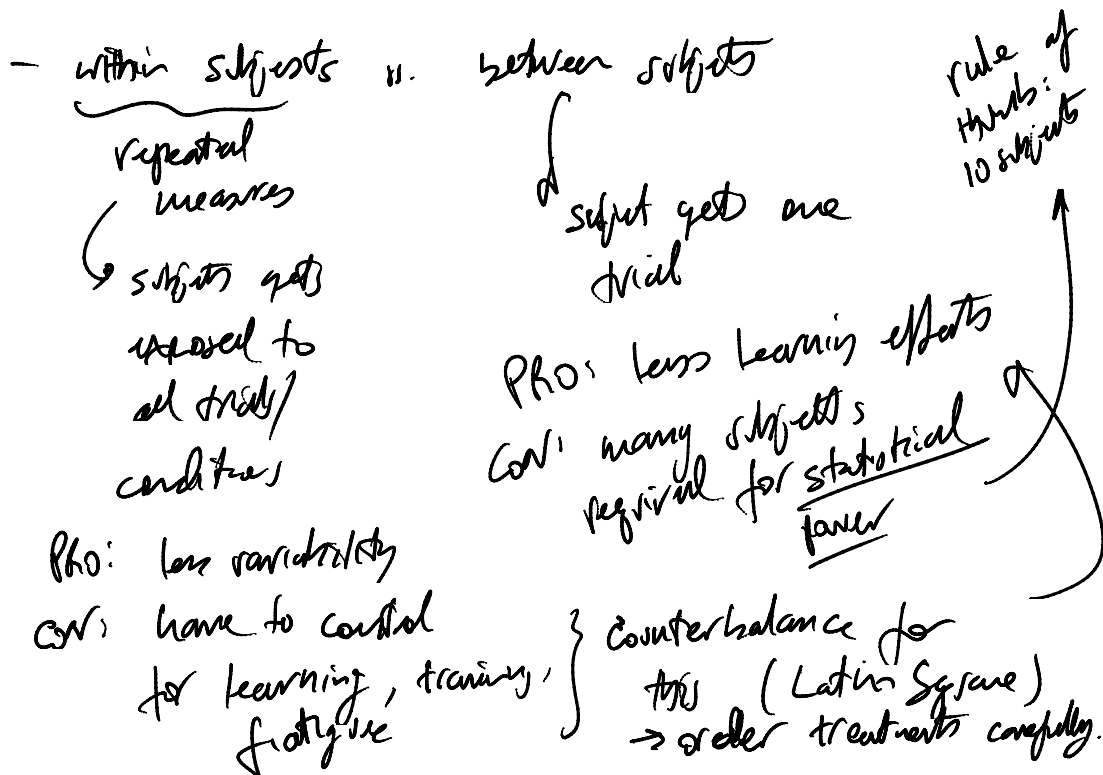 - within subjects vs. between subjects
repeated
measures
subjects gets
exposed to
all trials/
conditions
PRO: less variability
CON: have to control
for learning, training,
fatigue
subject gets one
trial
PRO: Less Learning effects
CON: many subjects
required for statistical
power
rule of
thumb:
10 subjects
Counterbalance for
this (Latin Square)
→ order treatments carefully.